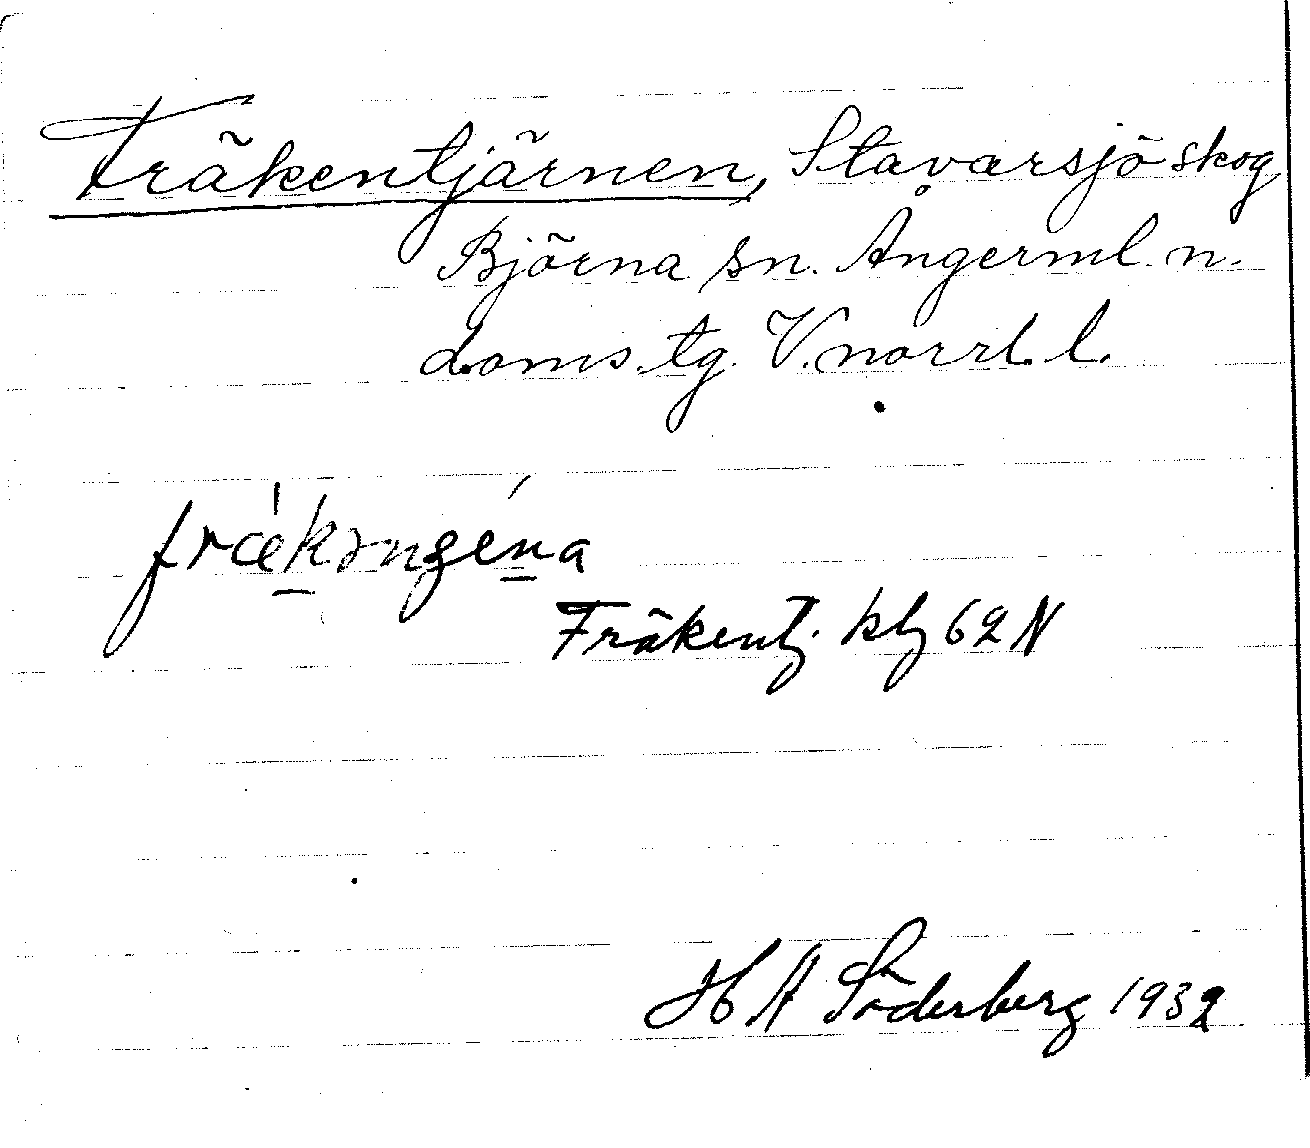 Fräkentjärnen, Stavarsjöskog
Björna sn. Ångerml. n.
doms.tg. V.norrl. l.
frækəngéna
Fräkentj. kbl 62 N
H A Söderberg 1932